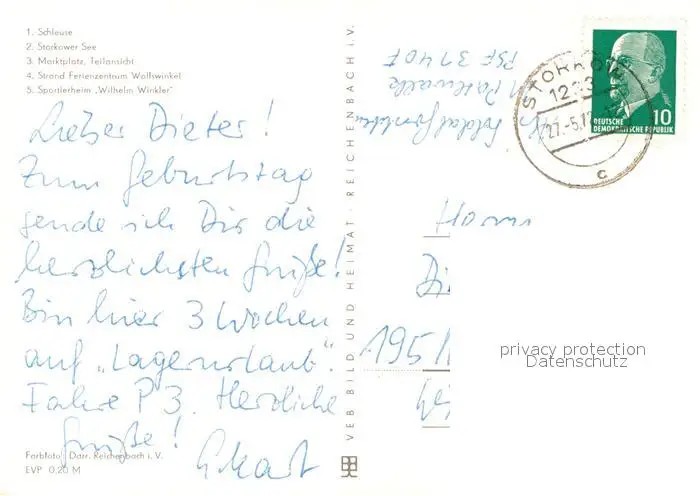 1. Schleuse
2. Storkower See
3. Marktplatz, Teilansicht
4. Strand Ferienzentrum Wolfswinkel
5. Sportlerheim „Wilhelm Winkler"
Lieber Dieter!
Zum Geburtstag
sende ich Dir die
herzlichsten Grüße!
Bin hier 3 Wochen
auf „Lagerurlaub".
Fahre P 3. Herzliche
Grüße!
Eckart
Farbfoto: Darr, Reichenbach i. V.
EVP 0,20 M
VEB BILD UND HEIMAT REICHENBACH i. V.
PSF 3140
STORKOW
1233
27.-5.
c
10
DEUTSCHE
DEMOKRATISCHE REPUBLIK
Herrn
Di
1951
privacy protection
Datenschutz